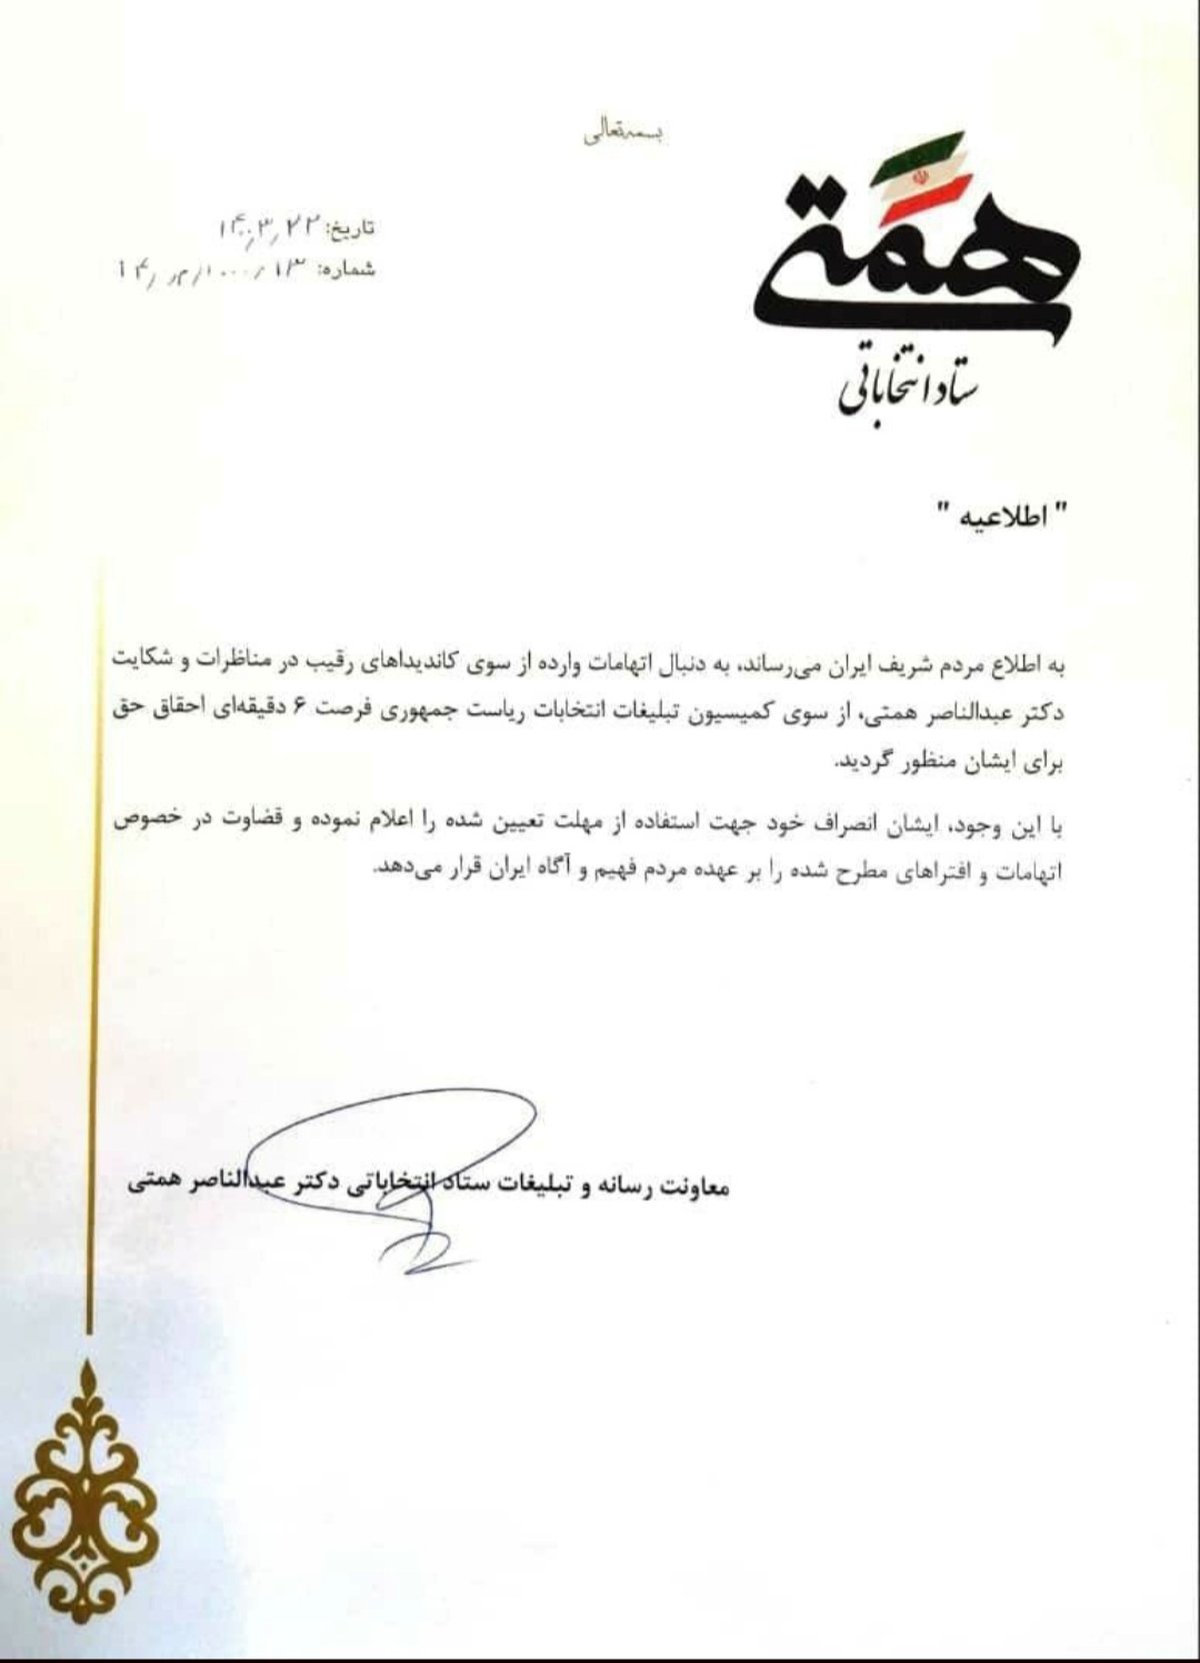 بسمه‌تعالی
همتی
ستاد انتخاباتی
تاریخ: ۱۴۰۰٫۳٫۲۲
شماره:
" اطلاعیه "
به اطلاع مردم شریف ایران می‌رساند، به دنبال اتهامات وارده از سوی کاندیداهای رقیب در مناظرات و شکایت
دکتر عبدالناصر همتی، از سوی کمیسیون تبلیغات انتخابات ریاست جمهوری فرصت ۶ دقیقه‌ای احقاق حق
برای ایشان منظور گردید.
با این وجود، ایشان انصراف خود جهت استفاده از مهلت تعیین شده را اعلام نموده و قضاوت در خصوص
اتهامات و افتراهای مطرح شده را بر عهده مردم فهیم و آگاه ایران قرار می‌دهد.
معاونت رسانه و تبلیغات ستاد انتخاباتی دکتر عبدالناصر همتی